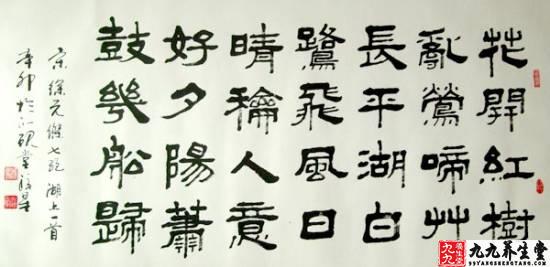 花開紅樹
亂鶯啼艸
長平湖白
鷺飛風日
晴龢人意
好夕陽蕭
鼓幾船歸
宋徐元傑七絕湖上一首
辛卯於
九九养生堂
99YANGSHENGTANG.COM